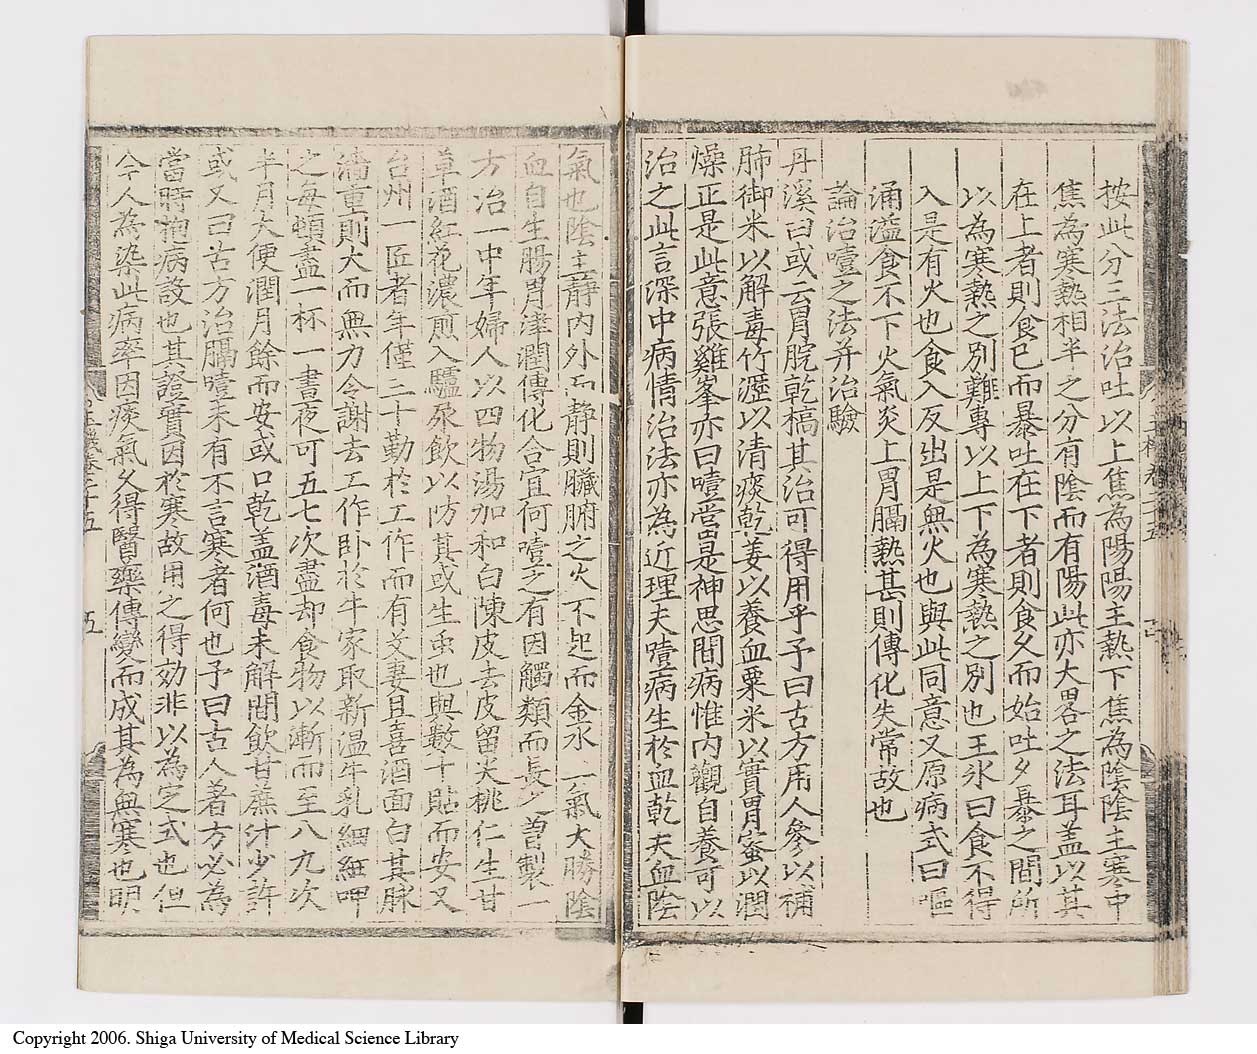 按此分三法治吐以上焦為陽陽主熱下焦為陰陰主寒中
焦為寒熱相半之分有陰而有陽此亦大畧之法耳盖以其
在上者則食已而暴吐在下者則食久而始吐夕暴之間所
以為寒熱之別難專以上下為寒熱之別也王氷曰食不得
入是有火也食入反出是無火也與此同意又原病式曰嘔
涌溢食不下火氣炎上胃膈熱甚則傳化失常故也
論治噎之法并治驗
丹溪曰或云胃脘乾槁其治可得用乎予曰古方用人參以補
肺御米以解毒竹瀝以清痰乾姜以養血粟米以實胃蜜以潤
燥正是此意張雞峯亦曰噎當是神思間病惟内觀自養可以
治之此言深中病情治法亦為近理夫噎病生於血乾夫血陰
氣也陰主靜内外而靜則臟腑之火不起而金水二氣大勝陰
血自生腸胃津潤傳化合宜何噎之有因觸類而長之曽製一
方治一中年婦人以四物湯加和白陳皮去皮留尖桃仁生甘
草酒紅花濃煎入驢尿飲以防其或生虫也與數十貼而安又
台州一匠者年僅三十勤於工作而有艾妻且喜酒面白其脉
濇重則大而無力令謝去工作卧於牛家取新温牛乳細細呷
之每頓盡一杯一晝夜可五七次盡却食物以漸而至八九次
半月大便潤月餘而安或口乾盖酒毒未解間飲甘蔗汁少許
或又曰古方治膈噎未有不言寒者何也予曰古人著方必為
當時抱病設也其證實因於寒故用之得効非以為定式也但
今人為染此病率因痰氣久得醫藥傳變而成其為無寒也明
Copyright 2006. Shiga University of Medical Science Library